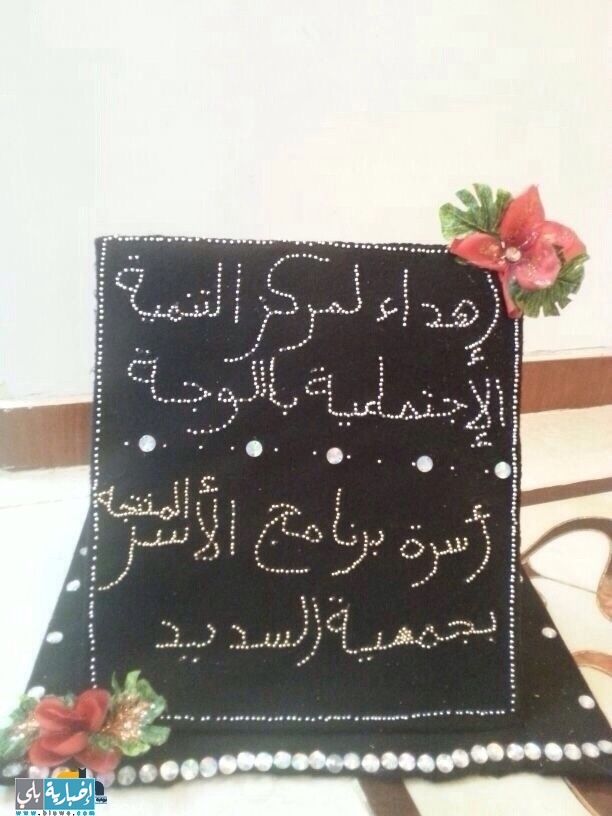 إهداء لمركز التنمية
الإجتماعية بالوجة
أسرة برنامج الأسر المنتجه
بجمعية السديد
إخبارية بلي
www.blewe.com